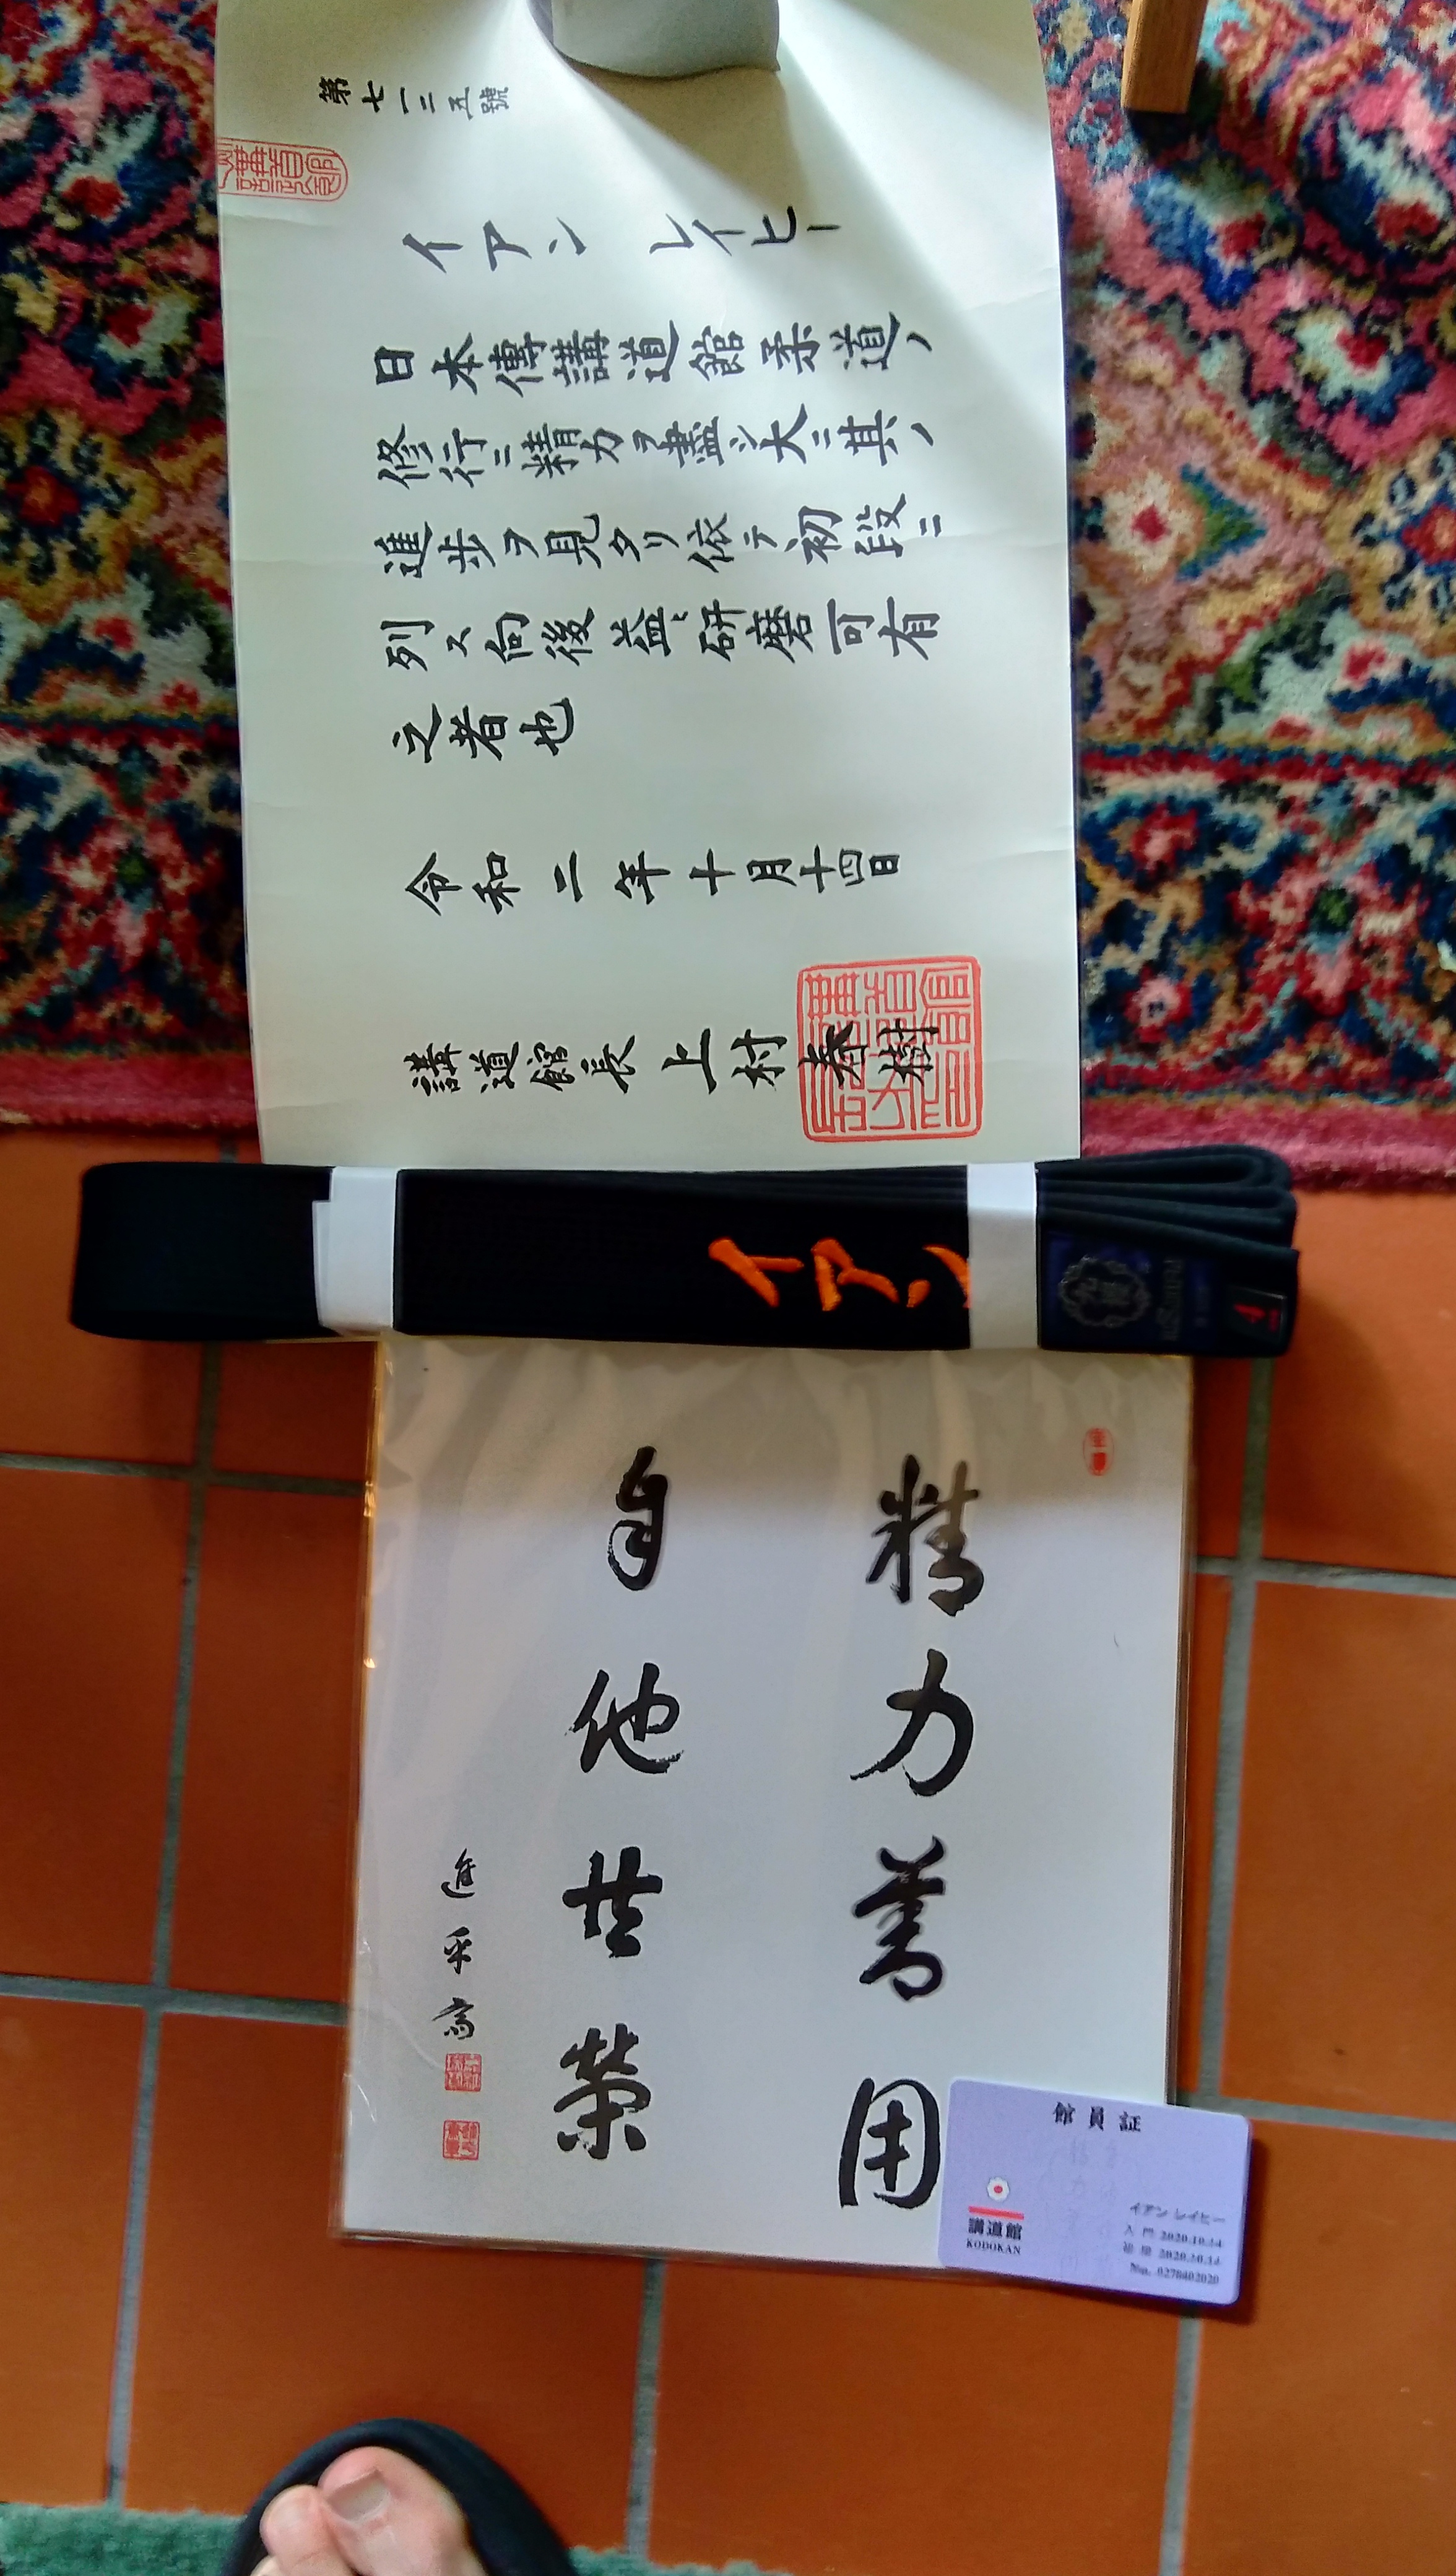 第七一三五號
イアン レイヒー
日本傳講道館柔道ノ
修行ニ精力ヲ盡シ大ニ其ノ
進歩ヲ見タリ依テ初段ニ
列ス向後益ヽ研磨可有
之者也
令和二年十月十四日
講道館長上村春樹
イアン
4
精力善用
自他共榮
進乎斎
館員証
講道館
KODOKAN
イアン レイヒー
入門 2020.10.14
2020.10.14
No.